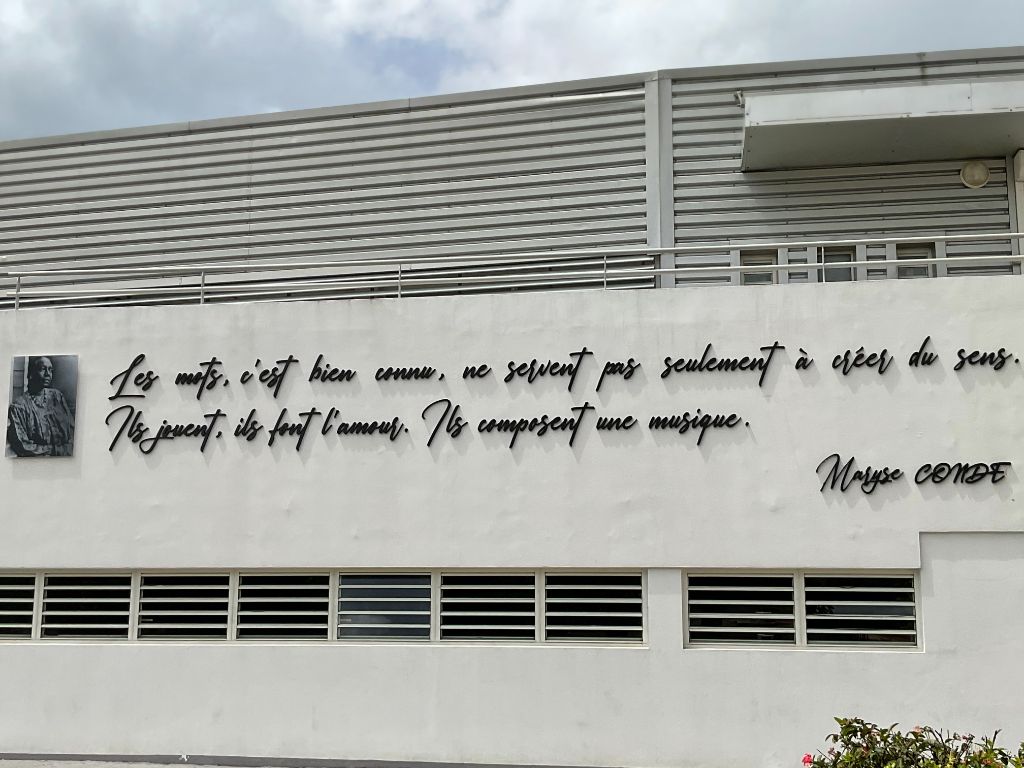 Les mots, c'est bien connu, ne servent pas seulement à créer du sens.
Ils jouent, ils font l'amour. Ils composent une musique.
Maryse CONDE